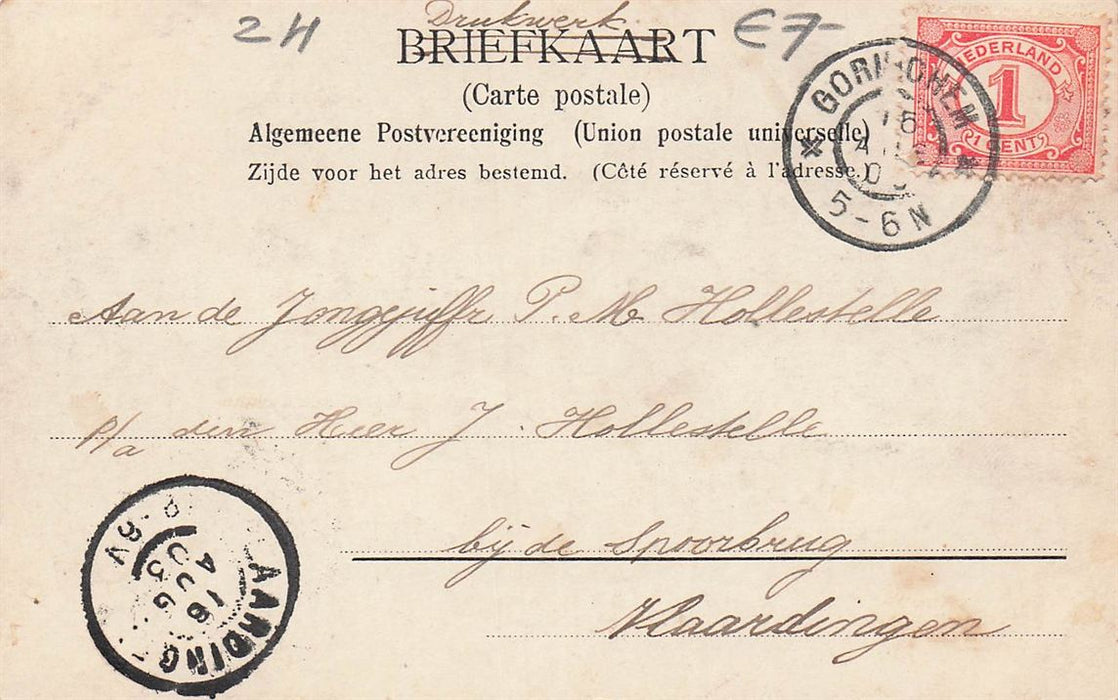 2H Drukwerk E7-
BRIEFKAART
(Carte postale)
Algemeene Postvereeniging (Union postale universelle)
Zijde voor het adres bestemd. (Côté réservé à l'adresse.)
NEDERLAND
1
1 CENT
5-6N
Aan de Jongejuffr P. M. Hollestelle
p/a den Heer J. Hollestelle
bij de Spoorbrug
Vlaardingen
AARDING
16
AUG
03